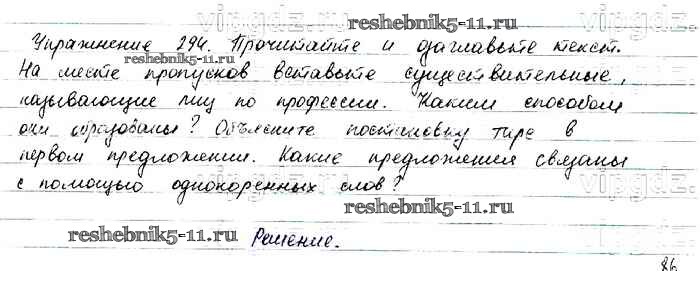 reshebnik5-11.ru
Упражнение 294. Прочитайте и озаглавьте текст.
reshebnik5-11.ru
На месте пропусков вставьте существительные,
называющие лиц по профессии. Каким способом
они образованы? Объясните постановку тире в
первом предложении. Какие предложения связаны
с помощью однокоренных слов?
vipgdz.ru
reshebnik5-11.ru
reshebnik5-11.ru
Решение.